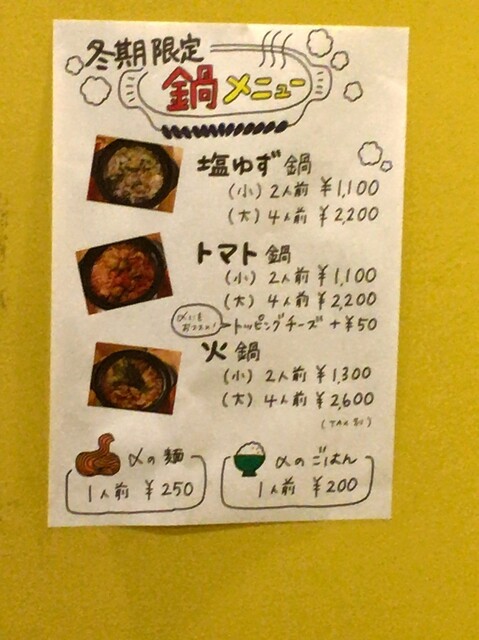 冬期限定
鍋メニュー
塩ゆず鍋
(小) 2人前 ¥1,100
(大) 4人前 ¥2,200
トマト鍋
(小) 2人前 ¥1,100
(大) 4人前 ¥2,200
〆にもおススメ!
トッピングチーズ +¥50
火鍋
(小) 2人前 ¥1,300
(大) 4人前 ¥2,600
(TAX別)
〆の麺
1人前 ¥250
〆のごはん
1人前 ¥200